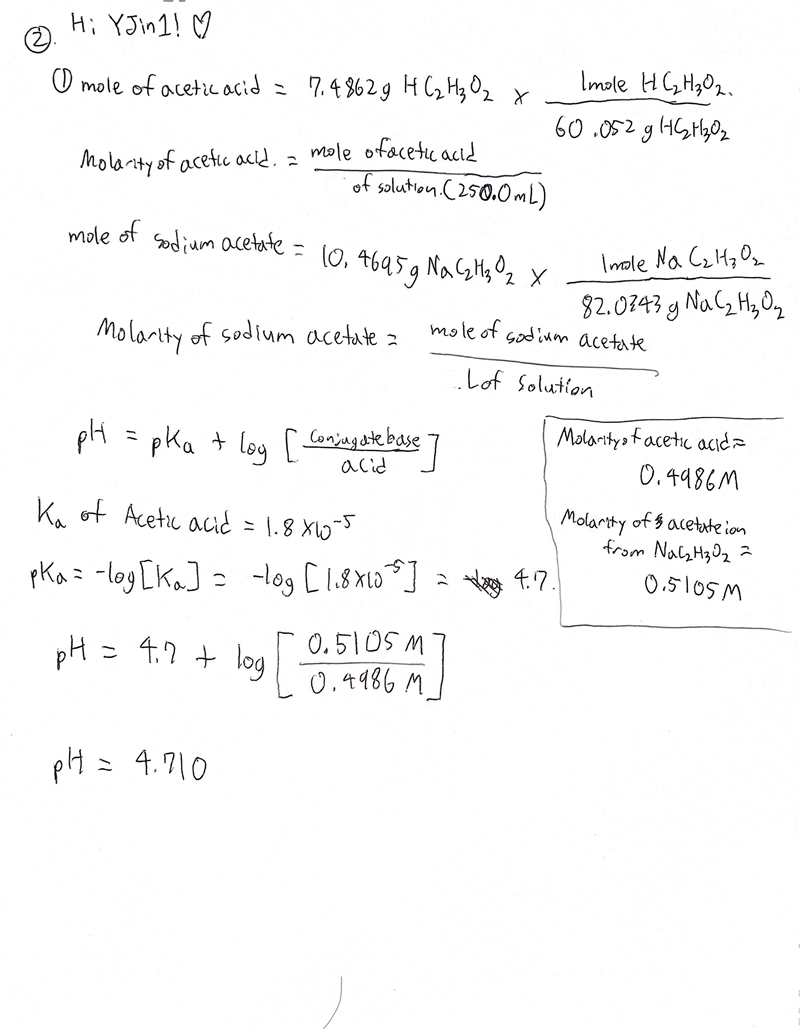 ②. Hi YJin1! ♡
① mole of acetic acid = 7.4862g HC₂H₃O₂ × 1mole HC₂H₃O₂. / 60.052 g HC₂H₃O₂
Molarity of acetic acid. = mole of acetic acid / of solution.(250.0mL)
mole of sodium acetate = 10.4695g NaC₂H₃O₂ × 1mole NaC₂H₃O₂ / 82.0343 g NaC₂H₃O₂
Molarity of sodium acetate = mole of sodium acetate / .L of solution
pH = pKa + log [conjugate base / acid]
Molarity of acetic acid =
0.4986M
Molarity of acetate ion
from NaC₂H₃O₂ =
0.5105M
Ka of Acetic acid = 1.8 ×10⁻⁵
pKa = -log[Ka] = -log [1.8×10⁻⁵] = 4.7.
pH = 4.7 + log [0.5105 M / 0.4986 M]
pH = 4.710